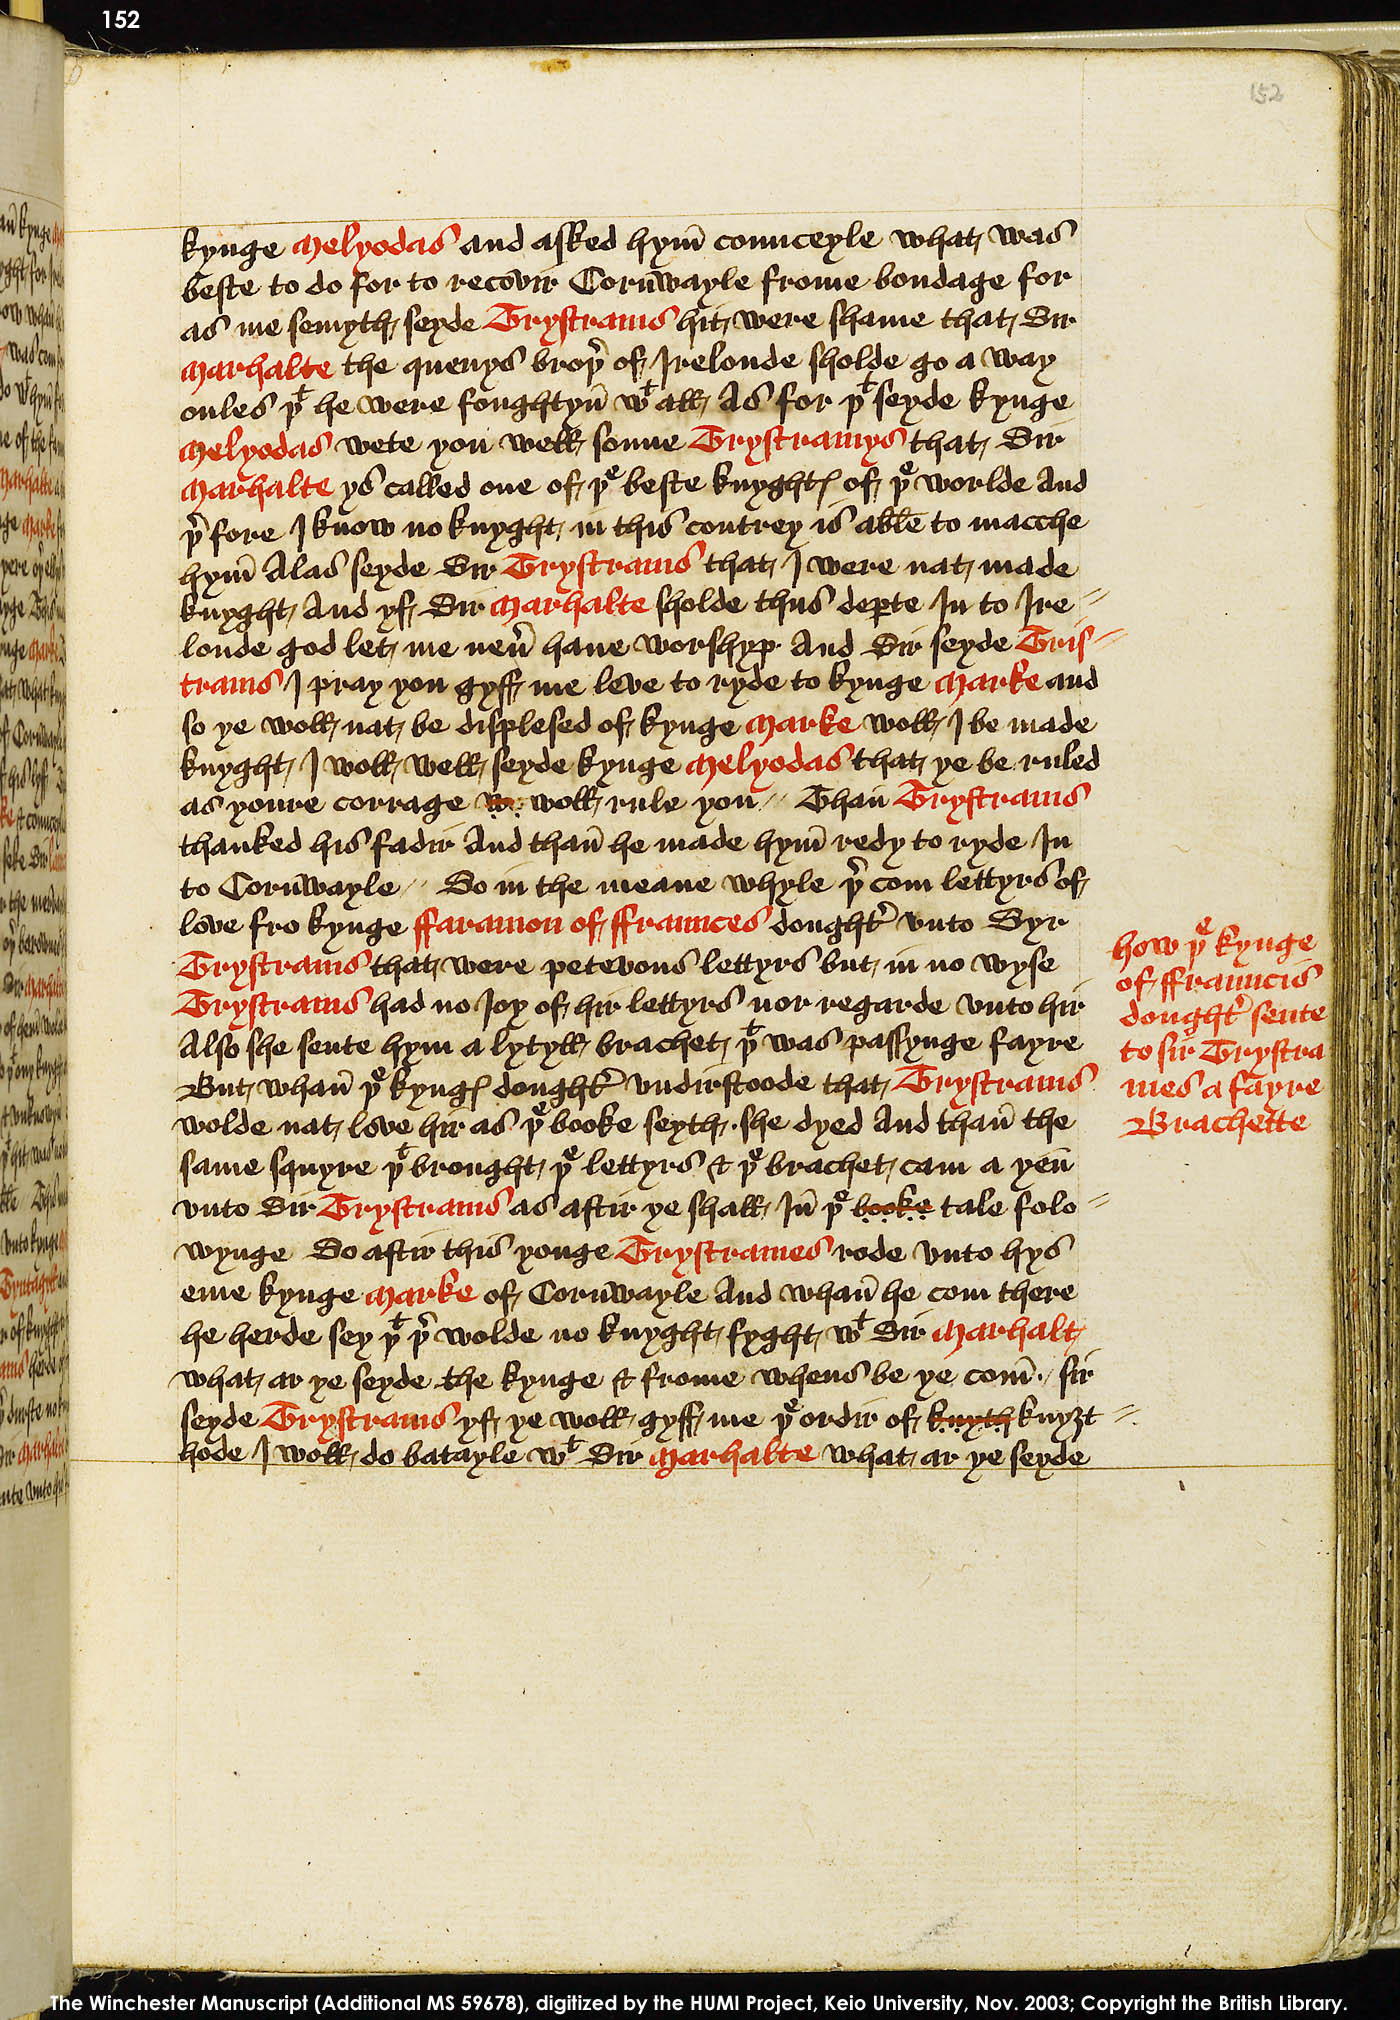 152
152
kynge Melyodas and asked hym̄ counceyle what was
beste to do for to recovir Cornwayle frome bondage for
as me semyth seyde Trystrams hit were shame that Sir
Marhalte the quenys broþ̉ of Irelonde sholde go a way
onles þᵗ he were foughtyn̄ wᵗ all As for þᵗ seyde kynge
Melyodas wete you well sonne Trystramys that Sir
Marhalte ys called one of þᵉ beste knyghtꝭ of þᵉ worlde And
þ̉ fore I know no knyght in this contrey is able to macche
hym̄ Alas seyde Sir Trystrams that I were nat made
knyght And yf Sir Marhalte sholde thus deꝑte In to Ire⸗
londe god let me neủ haue worshyp And Sir seyde Tris⸗
trams I pray you gyff me leve to ryde to kynge Marke and
so ye woll nat be displesed of kynge Marke woll I be made
knyght I woll well seyde kynge Melyodas that ye be ruled
as youre corrage w woll rule you Than̄ Trystrams
thanked his fadir And than̄ he made hym̄ redy to ryde In
to Cornwayle So in the meane whyle þ̉ com lettyrs of
love fro kynge ffaramon of ffraunces doughtr̉ vnto Syr
Trystrams that were petevous lettyrs but in no wyse
Trystrams had no Joy of hir lettyrs nor regarde vnto hir
Also she sente hym a lytyll brachet þᵗ was passynge fayre
But whan̄ þᵉ kyngꝭ doughtr̉ vndirstoode that Trystrams
wolde nat love hir as þᵉ booke seyth she dyed And than̄ the
same squyre þᵗ brought þᵉ lettyrs & þᵉ brachet cam a yen̄
vnto Sir Trystrams as aftir ye shall In̄ þᵉ booke tale folo⸗
wynge So aftir this yonge Trystrames rode vnto hys
eme kynge Marke of Cornwayle And whan̄ he com there
he herde sey þᵗ þ̉ wolde no knyght fyght wᵗ Sir Marhalt
what ar ye seyde the kynge & frome whens be ye com̄ sir
seyde Trystrams yf ye woll gyff me þᵉ ordir of knyth knyȝt⸗
hode I woll do batayle wᵗ Sir Marhalte what ar ye seyde
how þᵉ kynge
of ffrauncis
doughtr̉ sente
to sir Trystra
mes a fayre
Brachette
The Winchester Manuscript (Additional MS 59678), digitized by the HUMI Project, Keio University, Nov. 2003; Copyright the British Library.